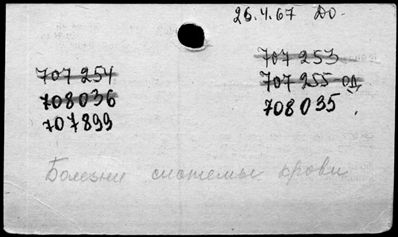 26.4.67 До.
707 253
707 254
707 255 од
708036
708035.
707899
Болезни системы крови